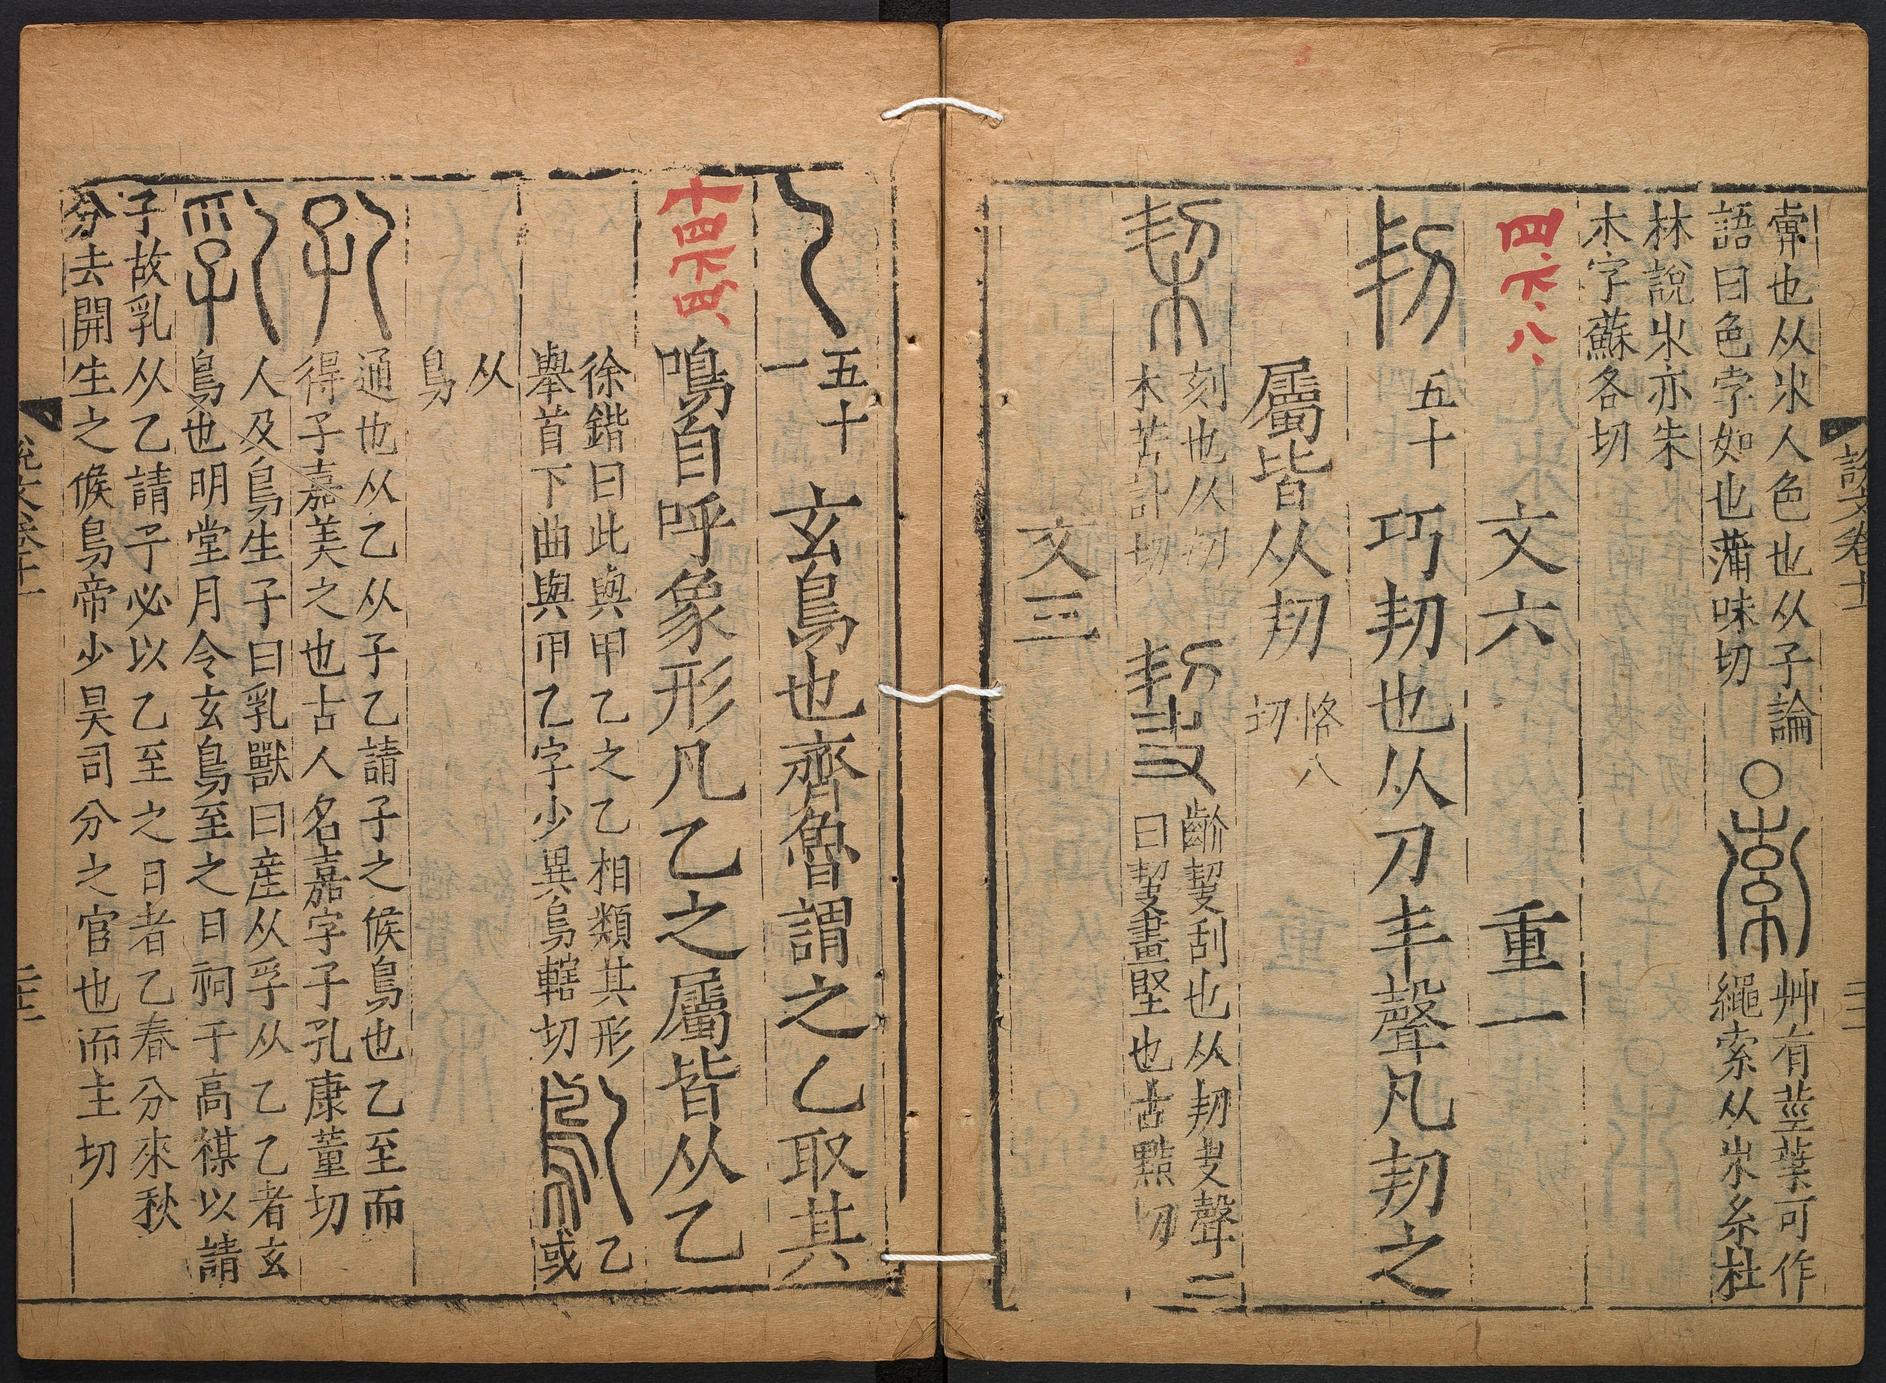 㪍也从𣎵人色也从子論
語曰色孛如也蒲味切
〇
艸有莖葉可作
繩索从𣎵糸杜
林說𣎵亦朱
木字蘇各切
四下八
文六 重一
㓞
五十
巧㓞也从刀丯聲凡㓞之
屬皆从㓞
恪八
切
栔
刻也从㓞
木苦計切
齘契刮也从㓞夬聲一
曰契畫堅也古黠切
文三
說文卷十一
五十
一
玄鳥也齊魯謂之乙取其
十四下四
鳴自呼象形凡乙之屬皆从乙
徐鍇曰此與甲乙之乙相類其形
舉首下曲與甲乙字少異烏轄切
乙
或
从
鳥
孔
通也从乙从子乙請子之候鳥也乙至而
得子嘉美之也古人名嘉字子孔康董切
乳
人及鳥生子曰乳獸曰產从孚从乙乙者玄
鳥也明堂月令玄鳥至之日祠于高禖以請
子故乳从乙請子必以乙至之日者乙春分來秋
分去開生之候鳥帝少昊司分之官也而主切
說文卷十一